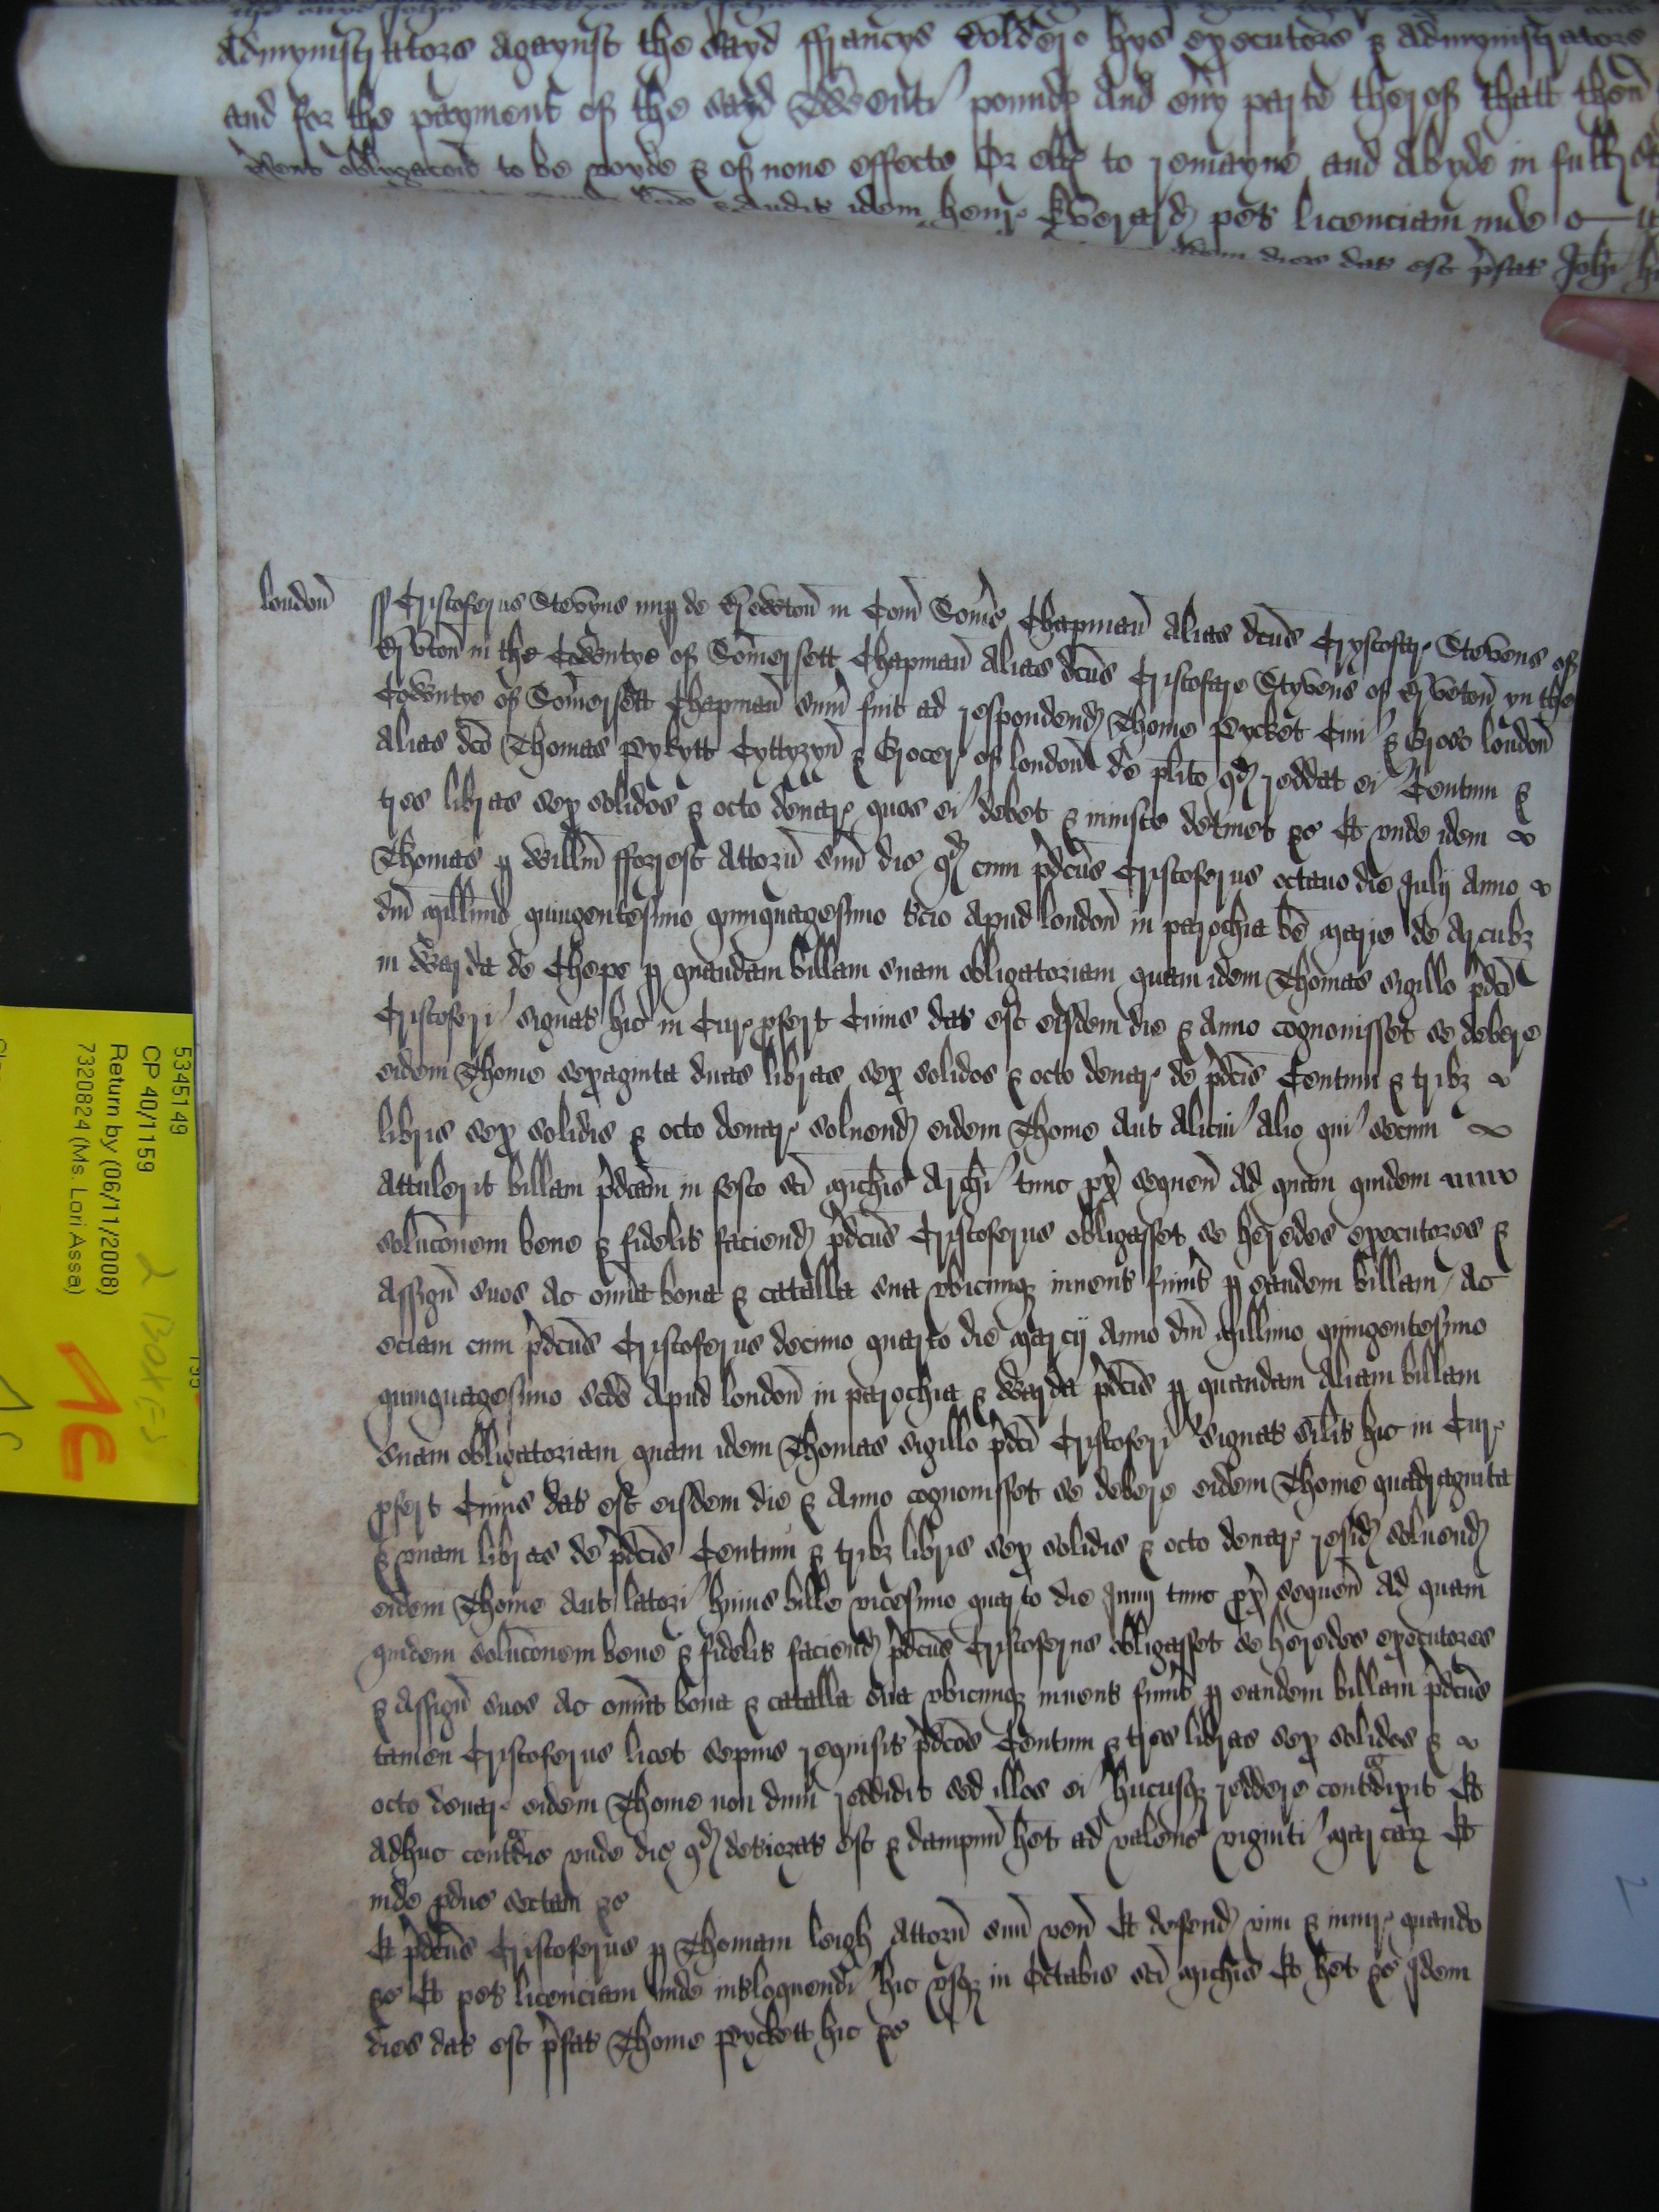 Admynistrators agaynst the sayd ffrancys hys executors & admynistrators
and for the payment of the sayd Twenti pounde And eny parte therof thatt then
psent oblygacon to be voyde & of none effecte Or elles to remayne and Abyde in full
idem Henr Everard pet licenciam inde
idem dies dat est pfat Joh
london
Cristoferus Stevyns nup de in Com Soms Chapman alias dcus Crystofar Stevens of
in the Cowntye of Somersett Chapman Alias dcus Cristofare Styvens of yn the
Cowntye of Somersett Chapman sum fuit ad respondend Thome Pycket Civi & Groc london
alias dco Thomas Pykytt Cyttyzyn & Grocer of london de plito qd reddat ei Centum &
tres libras sex solidos & octo denar quos ei debet & iniuste detinet &c Et unde idem
Thomas p Willm fforrest Attorn suu dic qd cum pdcus Cristoferus octavo die Julij Anno
dni millimo quingentesimo quinquagesimo tcio apud london in parochia be marie de Arcubz
in Warda de Chepe p quandam billam suam obligatoriam quam idem Thomas sigillo pdci
Cristoferi signat hic in Cur pfert Cuius dat est eisdem die & Anno cognovisset se debere
eidem Thome sexaginta duas libras sex solidos & octo denar de pdcis Centum & tribz
libris sex solidis & octo denar solvend eidem Thome aut alicui alio qui secum
attulerit billam pdcam in festo sci Michis Archi tunc px sequen Ad quam quidem
soluconem bene & fidelit faciend pdcus Cristoferus obligasset se heredes executores &
assign suos ac omia bona & catalla sua ubicumqz invent fuint p eandem billam Ac
eciam cum pdcus Cristoferus decimo quarto die marcij Anno dni millimo quingentesimo
quinquagesimo scdo apud london in parochia & Warda pdcis p quandam aliam billam
suam obligatoriam quam idem Thomas sigillo pdci Cristoferi signat silit hic in Cur
pfert Cuius dat est eisdem die & Anno cognovisset se debere eidem Thome quadraginta
& unam libras de pdcis Centum & tribz libris sex solidis & octo denar resid solvend
eidem Thome aut latori huius bille vicesimo quarto die Junij tunc px sequen ad quam
quidem soluconem bene & fidelit faciend pdcus Cristoferus obligasset se heredes executores
& assign suos ac omia bona & catalla sua ubicumqz invent fuint p eandem billam pdcus
tamen Cristoferus licet sepius requisit pdcos Centum & tres libras sex solidos &
octo denar eidem Thome non dum reddidit sed illos ei hucusqz reddere contradixit Et
adhuc contradic unde dic qd deteriorat est & dampnu het ad valenc viginti marcarz Et
inde pduc sectam &c
Et pdcus Cristoferus p Thomam leigh Attorn suu ven Et defend vim & iniur quando
&c Et pet licenciam inde intloquendi hic usqz in Octabis sci Michis Et het &c Idem
dies dat est pfat Thome Pyckett hic &c
5345149
CP 40/1159
Return by (06/11/2008)
7320824 (Ms. Lori Assa)